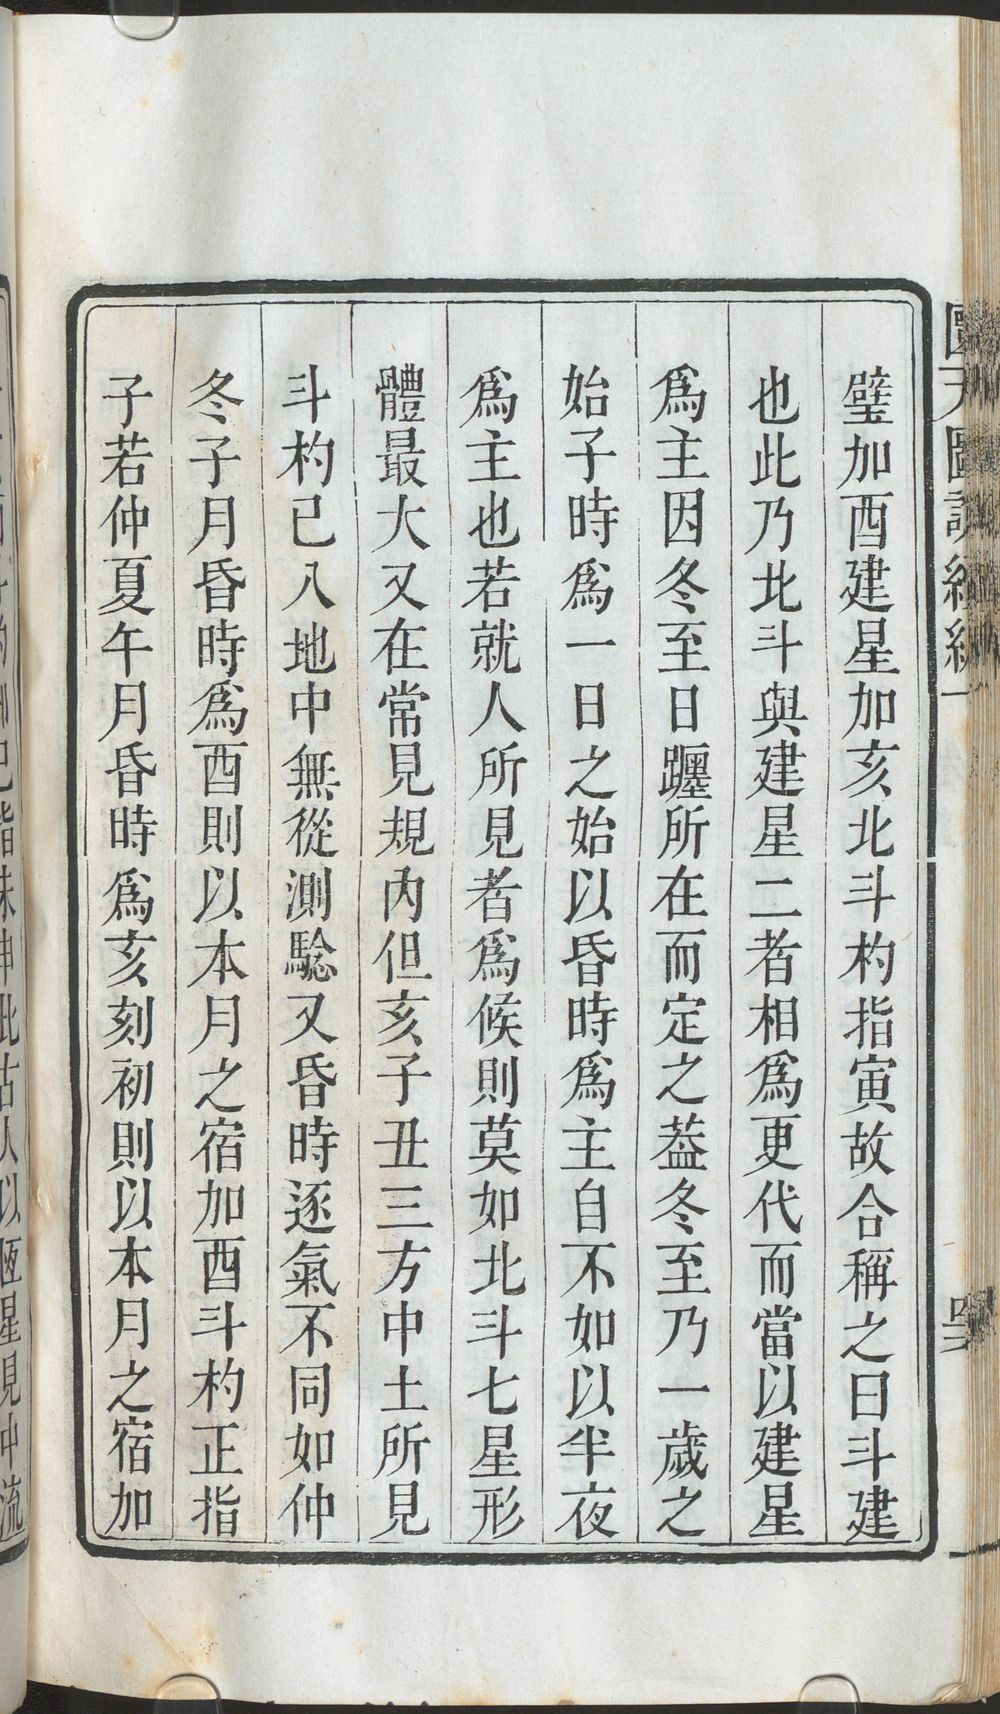 璧加酉建星加亥北斗杓指寅故合稱之曰斗建
也此乃北斗與建星二者相爲更代而當以建星
爲主因冬至日躔所在而定之葢冬至乃一歲之
始子時爲一日之始以昏時爲主自不如以半夜
爲主也若就人所見者爲候則莫如北斗七星形
體最大又在常見規內但亥子丑三方中土所見
斗杓已入地中無從測騐又昏時逐氣不同如仲
冬子月昏時爲酉則以本月之宿加酉斗杓正指
子若仲夏午月昏時爲亥刻初則以本月之宿加